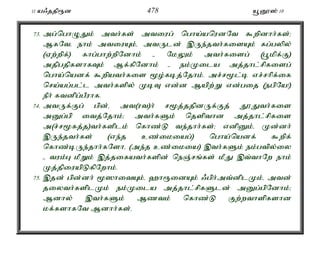 11 யஃததிரூன 478 யூனுஸ் 10
73. அப்பொழுதும் அவர்கள் அவரைப் பொய்யரெனவே கூறினார்கள்;
ஆகவே, நாம் அவரையும், அவருடன் இருந்தவர்களையும் கப்பலில்
(ஏற்றிக்) காப்பாற்றினோம் - மேலும் அவர்களைப் (பூமிக்கு)
அதிபதிகளாகவும் ஆக்கினோம் - நம்முடைய அத்தாட்சிகளைப்
பொய்யெனக் கூறியவர்களை மூழ்கடித்தோம். அச்சமூட்டி எச்சரிக்கை
செய்யப்பட்ட அவர்களில் முடிவு என்ன ஆயிற்று என்பதை (நபியே!)
நீர் கவனிப்பீராக.
74. அவருக்குப் பின், அவ(ரவ)ர் சமூத்ததினருக்குத் தூதுவர்களை
அனுப்பி வைத்தோம்; அவர்களும் தெளிவான அத்தாட்சிகளை
அ(ச்சமூகத்த)வர்களிடம் கொண்டு வந்தார்கள்; எனினும், முன்னர்
இருந்தவர்கள் (எந்த உண்மையைப்) பொய்யெனக் கூறிக்
கொண்டிருந்தார்களோ, (அந்த உண்மையை) இவர்களும் நம்பவில்லை
- வரம்பு மீறும் இத்தகையவர்களின் நெஞ்சங்கள் மீது இவ்வாறே நாம்
முத்திரையிடுகிறோம்.
75. இதன் பின்னர் மூஸாவையும், ஹாரூனையும் ஃபிர்அவ்னிடமும், அவன்
தலைவர்களிடமும் நம்முடைய அத்தாட்சிகளுடன் அனுப்பினோம்;
ஆனால் இவர்களும் ஆணவம் கொண்டு குற்றவாளிகளான
மக்களாகவே ஆனார்கள்.